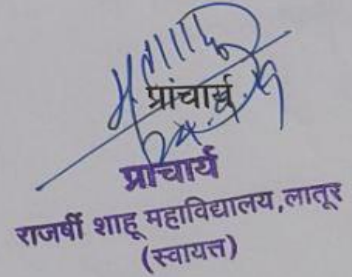 प्रांचार्य
प्राचार्य
राजर्षी शाहू महाविद्यालय,लातूर
(स्वायत्त)